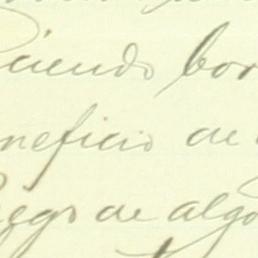 ciendo bor
neficio de
rego de algo